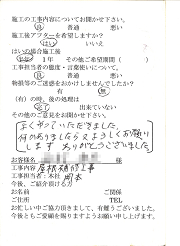 施工の工事内容についてお聞かせ下さい。
良 普通 悪い
施工後アフターを希望しますか?
はい いいえ
はいの場合施工後
1年 その他ご希望期間( )
工事担当者の態度・言葉使いについて。
良 普通 悪い
物損等のご迷惑をおかけしませんでしたか?
有 無
(有)の時、後の処理は
完了 出来ていない
その他のご意見をお聞かせ下さい。
よくやっていただきました。
何かありましたら又よろしくお願い
します ありがとうございました
お客様名 様
工事内容 屋根補修工事
工事担当者:本社 岡本
今後、ご紹介頂ける方
お名前 ご関係
ご住所 TEL
お忙しい中ご協力頂きまして、有難うございました。
今後ともご愛顧を賜りますようお願い申し上げます。